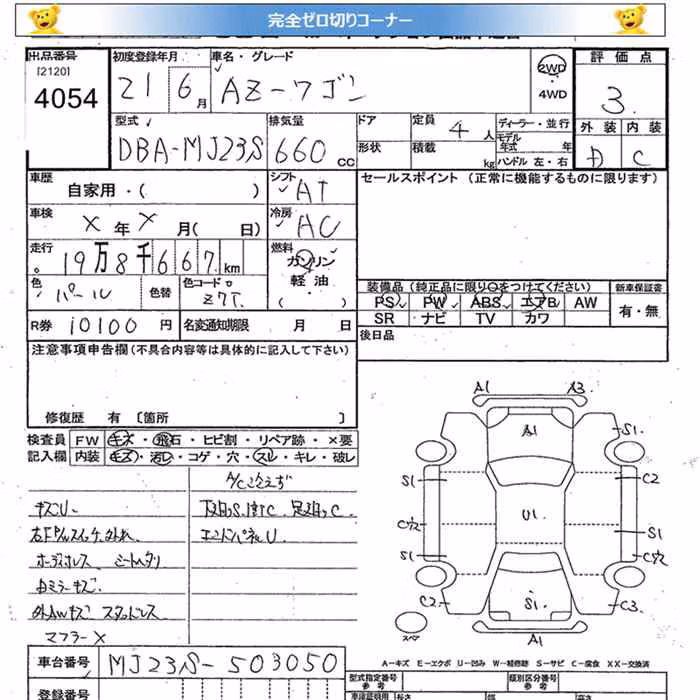 完全ゼロ切りコーナー
出品番号 初度登録年月 車名・グレード 評価点
[2120]
4054 21 6月 AZ-ワゴン 2WD 4WD 3
型式 排気量 ドア 定員 4人 ディーラー・並行 外装 内装
DBA-MJ23S 660cc 形状 積載 kg モデル年式 年 ハンドル 左・右 D C
車歴 シフト セールスポイント (正常に機能するものに限ります)
自家用・( ) AT
車検 冷房
X年X月( 日) AC
走行 燃料
19万8千667km ガソリン
軽油
色 パール 色替 色コード Z7T ( )
装備品 (純正品に限り○をつけてください) 新車保証書
PS PW ABS エアB AW 有・無
SR ナビ TV カワ
R券 10100円 名変通知期限 月 日 後日品
注意事項申告欄(不具合内容等は具体的に記入して下さい)
修復歴 有 [箇所 ]
検査員 FW キズ・飛石・ヒビ割・リペア跡・×要
記入欄 内装 キズ・汚レ・コゲ・穴・スレ・キレ・破レ
A/C冷えず
キズU
下廻りS.1部C 足廻りC
エンドパネU
右ミラーキズ
外AWキズ スタッドレス
マフラーX
A1 A3
A1 S1
S1 C2
U1
S1 S1
C2 S1 C3
スペア A1
A-キズ E-エクボ U-凹み W-補修跡 S-サビ C-腐食 XX-交換済
車台番号 MJ23S-503050
型式指定番号 参考 類別区分番号 参考
登録番号 車庫証明用 参考 長さ